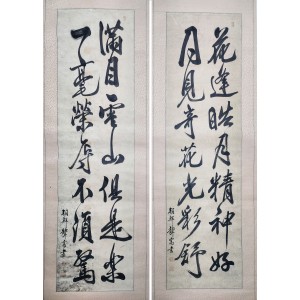 花逢皓月精神好
月見奇花光彩舒
滿目雲山俱是樂
一毫榮辱不須驚